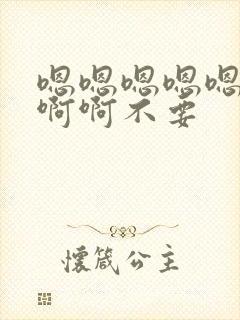 嗯嗯嗯嗯嗯
啊啊不要
懷箴公主